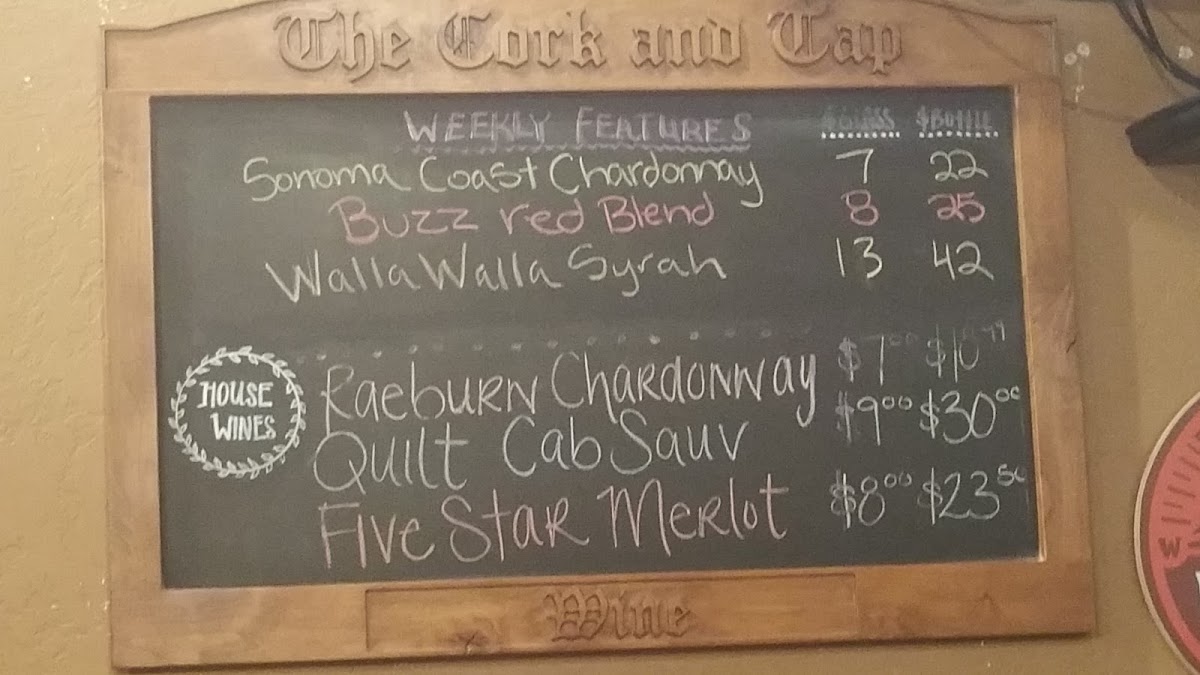 The Cork and Tap
WEEKLY FEATURES $GLASS $BOTTLE
Sonoma Coast Chardonnay 7 22
Buzz red Blend 8 25
Walla Walla Syrah 13 42
HOUSE WINES
Raeburn Chardonnay $7⁰⁰
Quilt Cab Sauv $9⁰⁰ $30⁰⁰
Five Star Merlot $8⁰⁰ $23⁵⁰
Wine